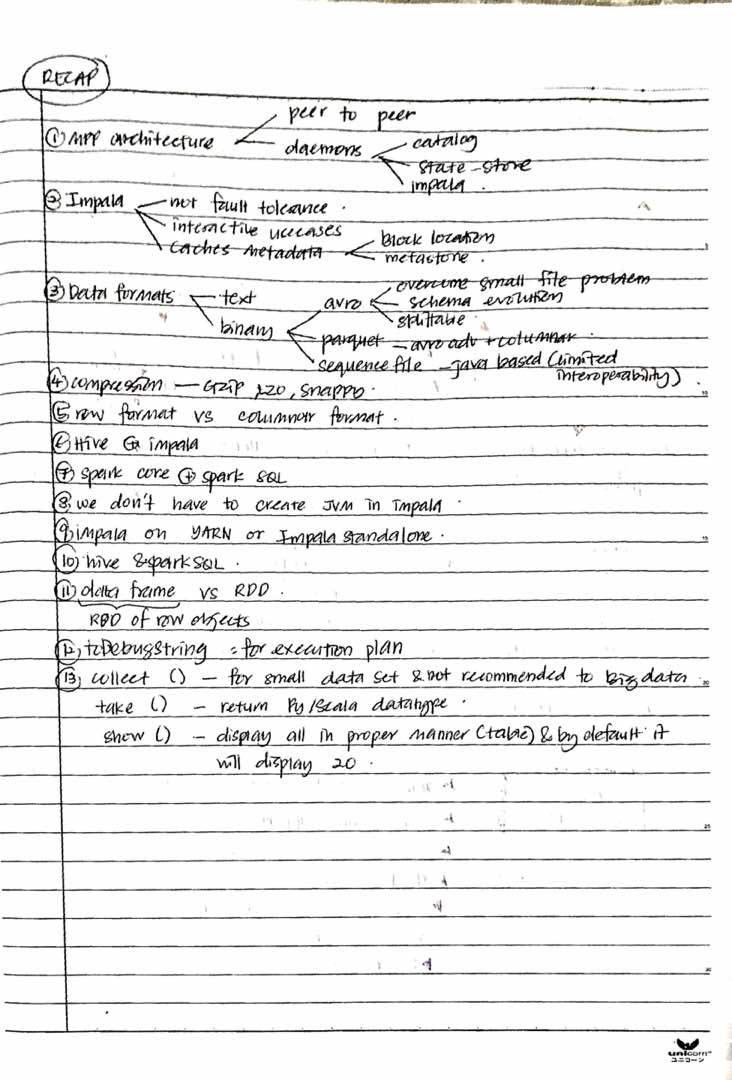 RECAP
peer to peer
① MPP architecture
daemons
catalog
state-store
impala.
② Impala
not fault tolerance.
interactive usecases
caches metadata
Block location
metastore.
③ Data formats
text
binary
avro
overcome small file problem
schema evolution
splittable
parquet - avro adv + columnar.
sequence file - java based (limited
interoperability)
④ compression — GZIP, LZO, snappy.
⑤ row format vs columnar format.
⑥ Hive & impala
⑦ spark core & spark SQL
⑧ we don't have to create JVM in impala.
⑨ impala on YARN or Impala standalone.
⑩ hive & sparkSQL.
⑪ data frame vs RDD.
RDD of row objects
⑫ toDebugString = for execution plan
⑬ collect () – for small data set & not recommended to big data
take () – return Py/Scala datatype.
show () – display all in proper manner (table) & by default it
will display 20.
unicorn
ユニコーン